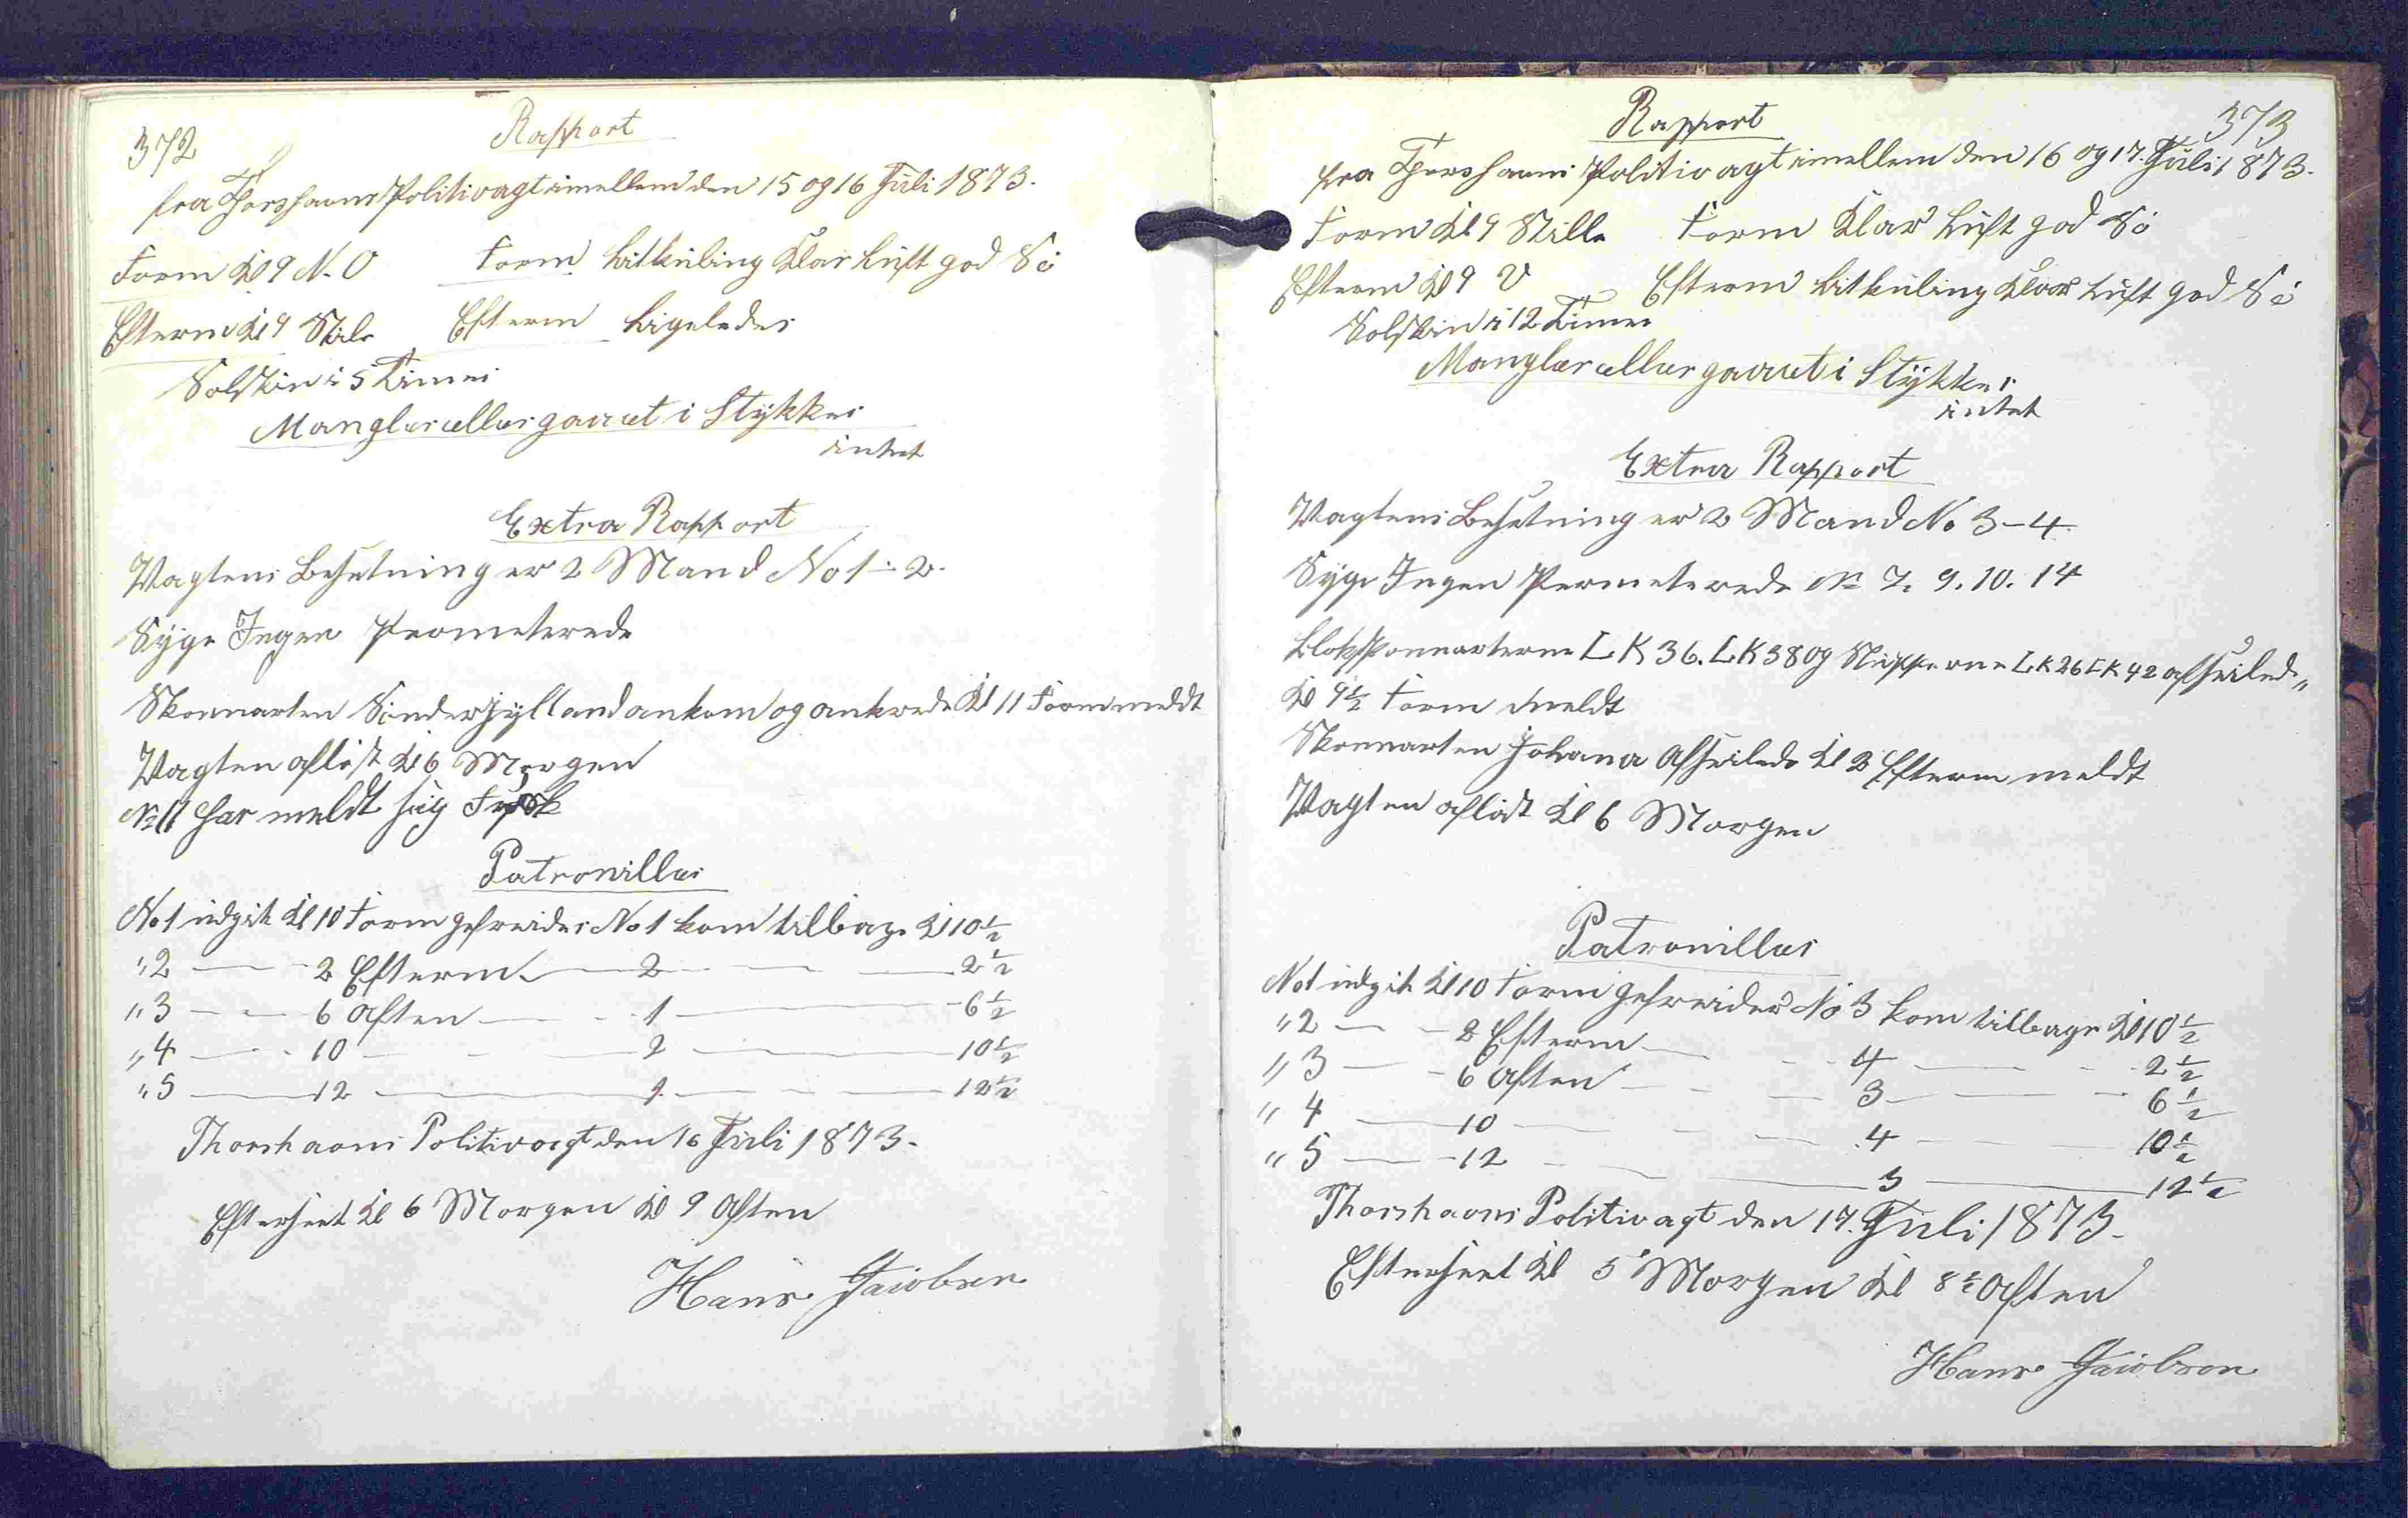 372
Rapport
fra Thorshavns Politivagt imellem den 15 og 16 Juli 1873.
Form Kl 9 N. O Form Litkuling Klar Luft god Sö
Efterm Kl 9 Stile Efterm Ligeledes
Solskin i 5 Timer
Mangler eller gaaet i Stykker
intet
Extra Rapport
Vagtens Besetning er 2 Mand No 1 - 2.
Syge Ingen Permeterede
Skonnarten Sönderjylland ankom og ankrede Kl 11 Form meldt
Vagten aflöst Kl 6 Morgen
No 11 har meldt sig Frisk
Patrouiller
No 1 udgik Kl 10 Form gefreider No 1 kom tilbage Kl 10 1/2
" 2 — — 2 Efterm — 2 — — 2 1/2
" 3 — — 6 Aften — — 1 — 6 1/2
" 4 — — 10 — — 2 — 10 1/2
" 5 — 12 — 1 — — 12 1/2
Thorshavns Politivagt den 16 Juli 1873.
Efterseet Kl 6 Morgen Kl 9 Aften
Hans Jacobsen
373
Rapport
fra Thorshavns Politivagt imellem den 16 og 17. Juli 1873.
Form Kl 9 Stille Form Klar Luft god Sö
Efterm Kl 9 V Efterm Litkuling Klar Luft god Sö
Solskin i 12 Timer
Mangler eller gaaet i Stykker
intet
Extra Rapport
Vagtens Besetning er 2 Mand No 3 - 4.
Syge Ingen Permeterede No 7. 9. 10. 14
Slopskonnarterne LK 36. LK 38 og Slupperne LK 26 LK 42 afseilede"
Kl 9 1/2 Form meldt
Skonnarten Johana Afseilede Kl 2 Efterm meldt
Vagten aflöst Kl 6 Morgen
Patrouiller
No 1 udgik Kl 10 Form gefreider No 3 kom tilbage Kl 10 1/2
" 2 — — 2 Efterm — — 4 — — 2 1/2
" 3 — — 6 Aften — — 3 — — 6 1/2
" 4 — 10 — — 4 — — 10 1/2
" 5 — 12 — — 3 — 12 1/2
Thorshavns Politivagt den 17. Juli 1873.
Efterseet Kl 5 Morgen Kl 8 1/2 Aften
Hans Jacobsen